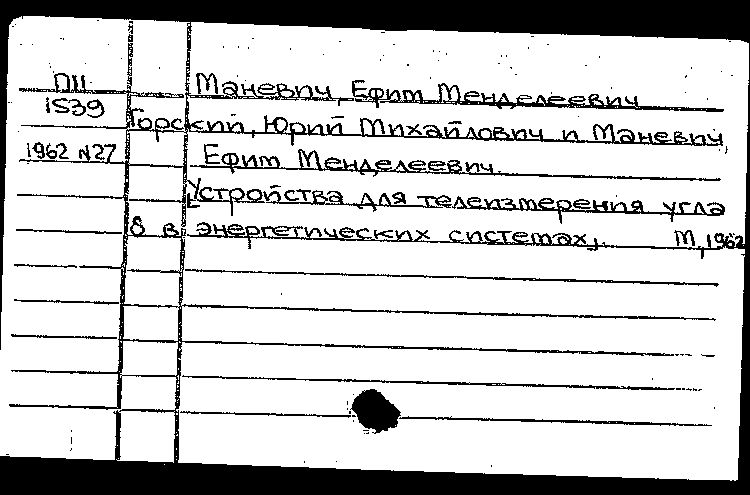 П11 Маневич, Ефим Менделеевич
1539 Горский, Юрий Михайлович и Маневич,
1962 №27 Ефим Менделеевич.
Устройства для телеизмерения угла
δ в энергетических системах, М, 1962